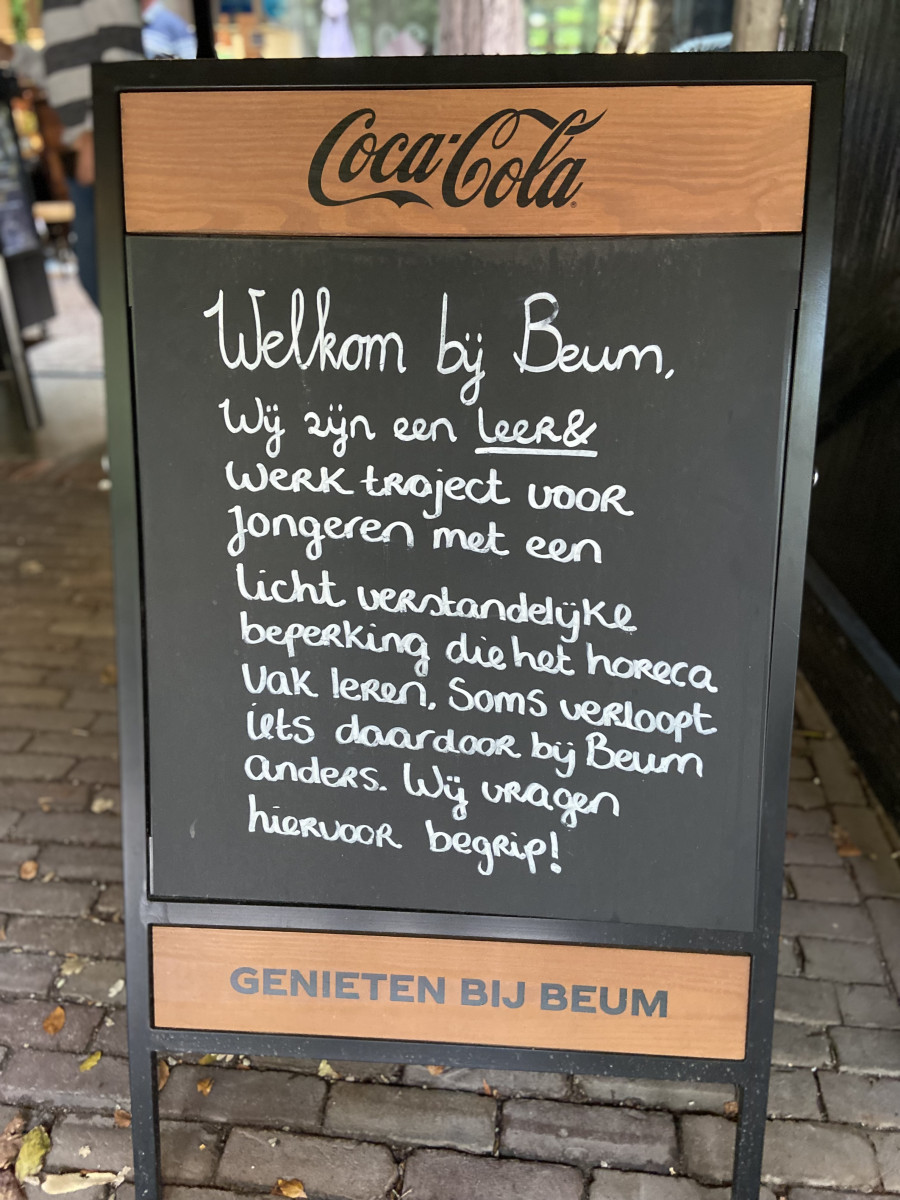 Coca-Cola
Welkom bij Beum,
Wij zijn een leer&
werk traject voor
Jongeren met een
licht verstandelijke
beperking die het horeca
vak leren. Soms verloopt
iets daardoor bij Beum
anders. Wij vragen
hiervoor begrip!
GENIETEN BIJ BEUM